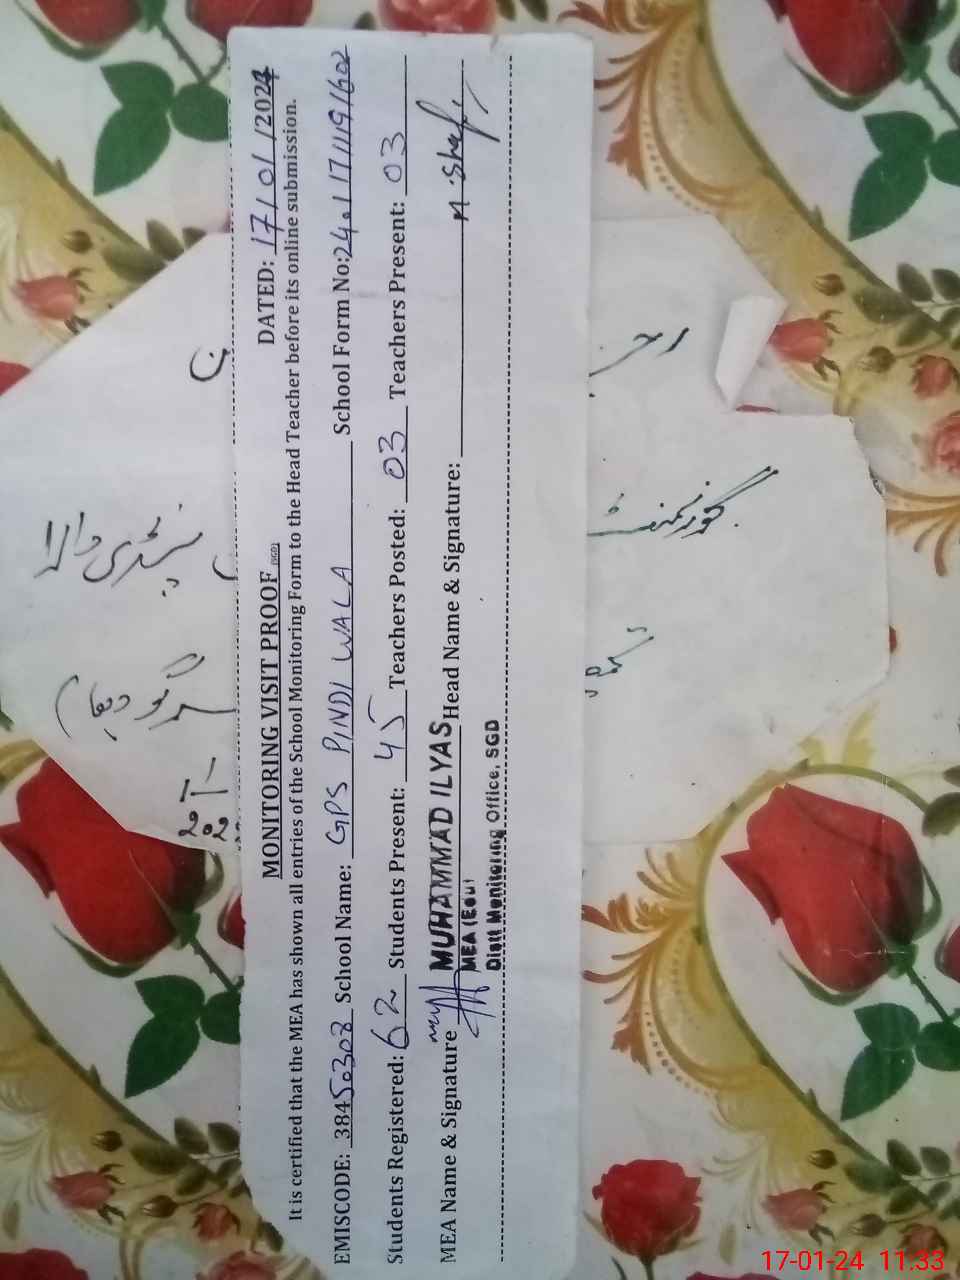 MONITORING VISIT PROOF (SGD) DATED: 17/01/2024
It is certified that the MEA has shown all entries of the School Monitoring Form to the Head Teacher before its online submission.
EMISCODE: 38450308 School Name: GPS PINDI WALA School Form No:
Students Registered: 62 Students Present: 45 Teachers Posted: 03 Teachers Present: 03
MEA Name & Signature MUHAMMAD ILYAS Head Name & Signature: M. Shafi
MEA (Edu)
Distt Monitoring Office, SGD
گورنمنٹ
پنڈی والا
سرگودھا
17-01-24 11:33